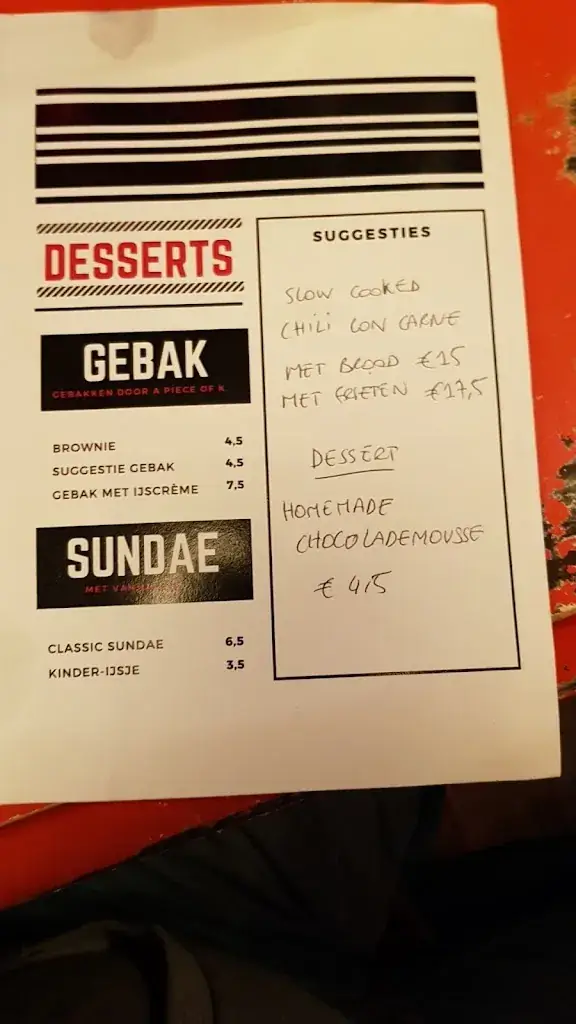 DESSERTS
GEBAK
GEBAKKEN DOOR A PIECE OF K
BROWNIE 4,5
SUGGESTIE GEBAK 4,5
GEBAK MET IJSCRÈME 7,5
SUNDAE
MET
CLASSIC SUNDAE 6,5
KINDER-IJSJE 3,5
SUGGESTIES
SLOW COOKED
CHILI CON CARNE
MET BROOD €15
MET FRIETEN €17,5
DESSERT
HOMEMADE
CHOCOLADEMOUSSE
€ 4,5